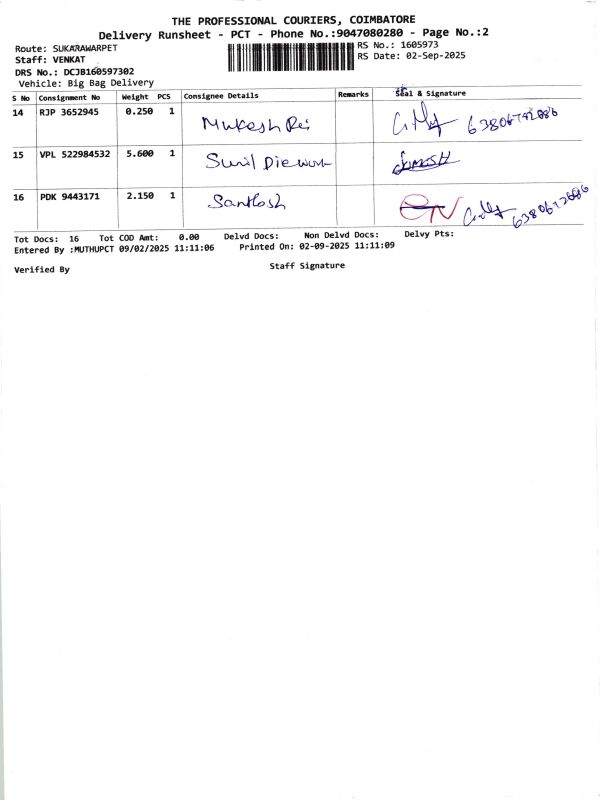 THE PROFESSIONAL COURIERS, COIMBATORE
Delivery Runsheet - PCT - Phone No.:9047080280 - Page No.:2
Route: SUKARAWARPET
RS No.: 1605973
Staff: VENKAT
RS Date: 02-Sep-2025
DRS No.: DCJB160597302
Vehicle: Big Bag Delivery
S No Consignment No Weight PCS Consignee Details Remarks Seal & Signature
14 RJP 3652945 0.250 1
Mukesh
15 VPL 522984532 5.600 1
Sunil
16 PDK 9443171 2.150 1
Santhosh
Tot Docs: 16 Tot COD Amt: 0.00 Delvd Docs: Non Delvd Docs: Delvy Pts:
Entered By :MUTHUPCT 09/02/2025 11:11:06 Printed On: 02-09-2025 11:11:09
Verified By
Staff Signature